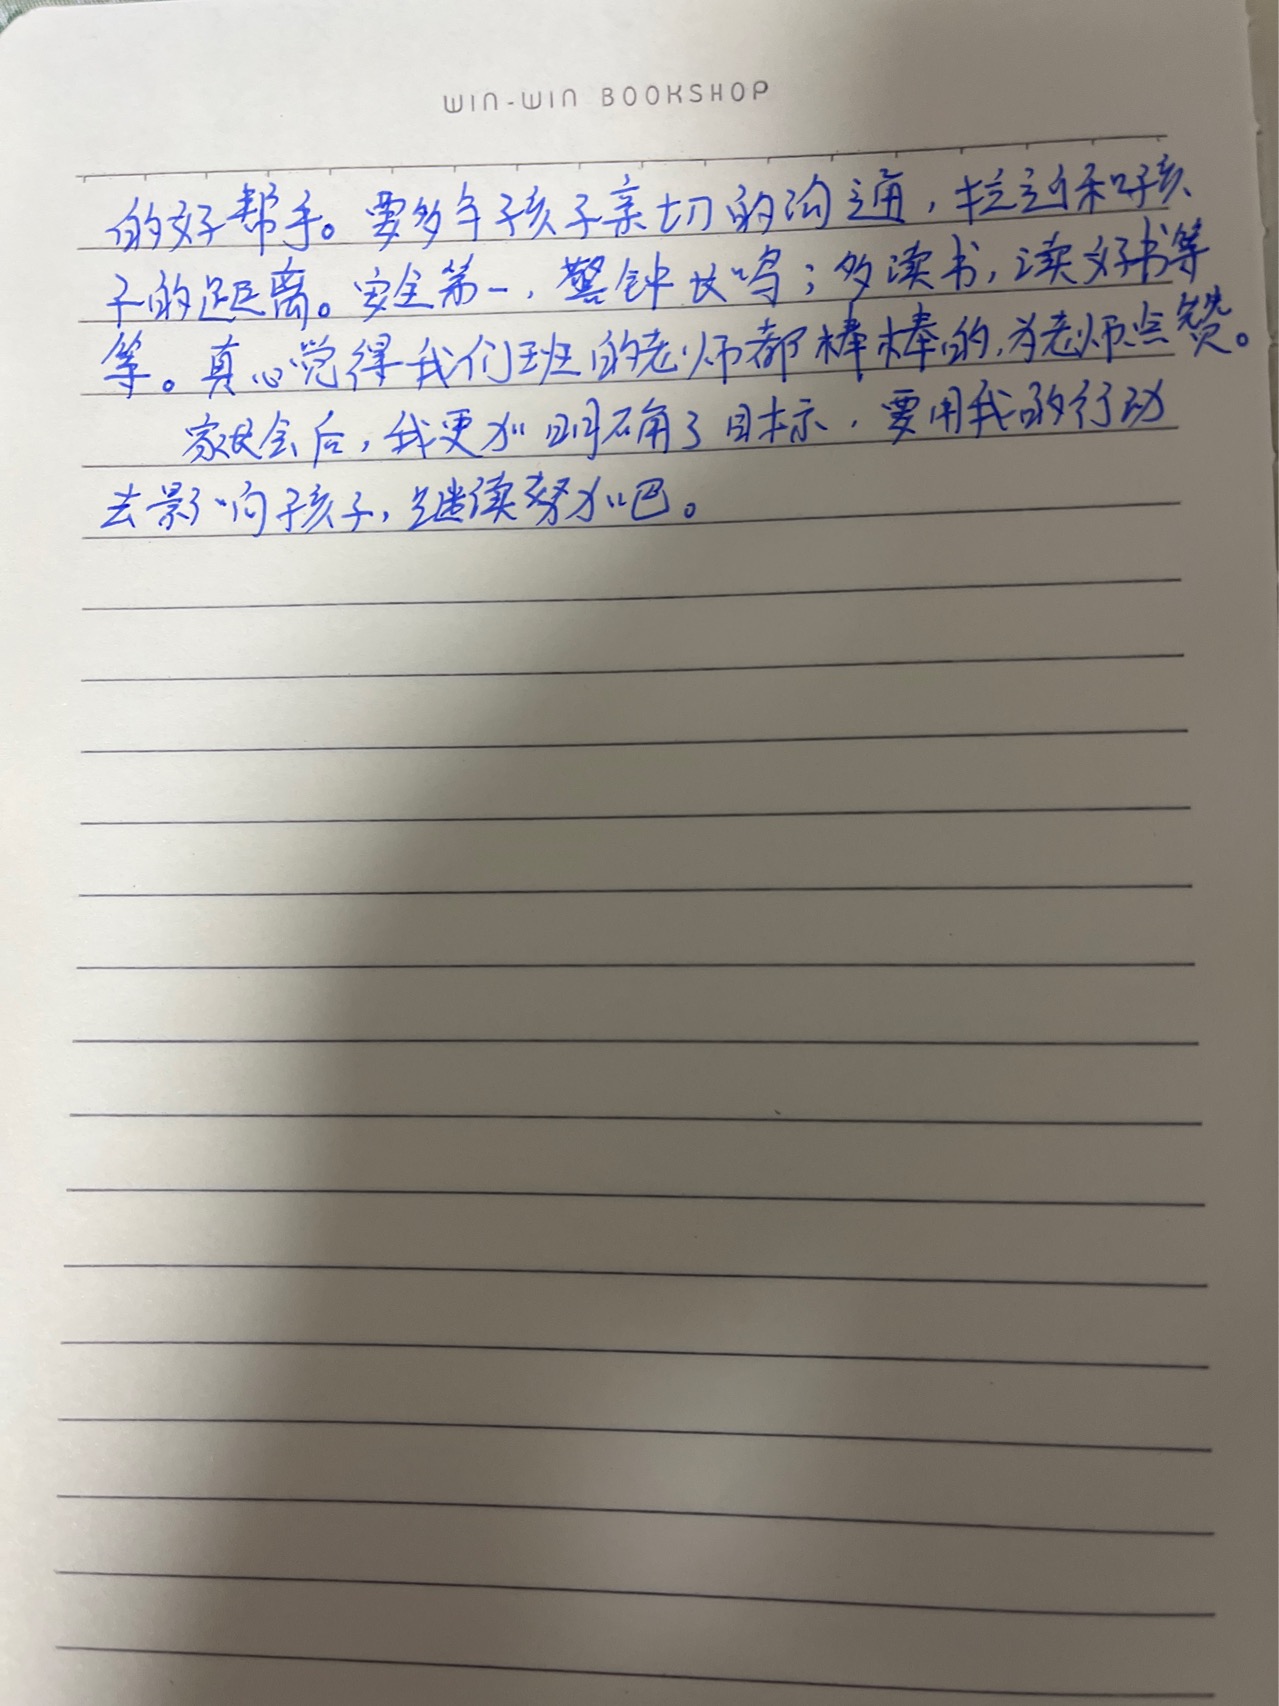 WIN-WIN BOOKSHOP
的好帮手。要多与孩子亲切的沟通，拉近和孩
子的距离。安全第一，警钟长鸣；多读书，读好书等
等。真心觉得我们班的老师都棒棒的，为老师点赞。
家长会后，我更加明确了目标，要用我的行动
去影响孩子，继续努力吧。